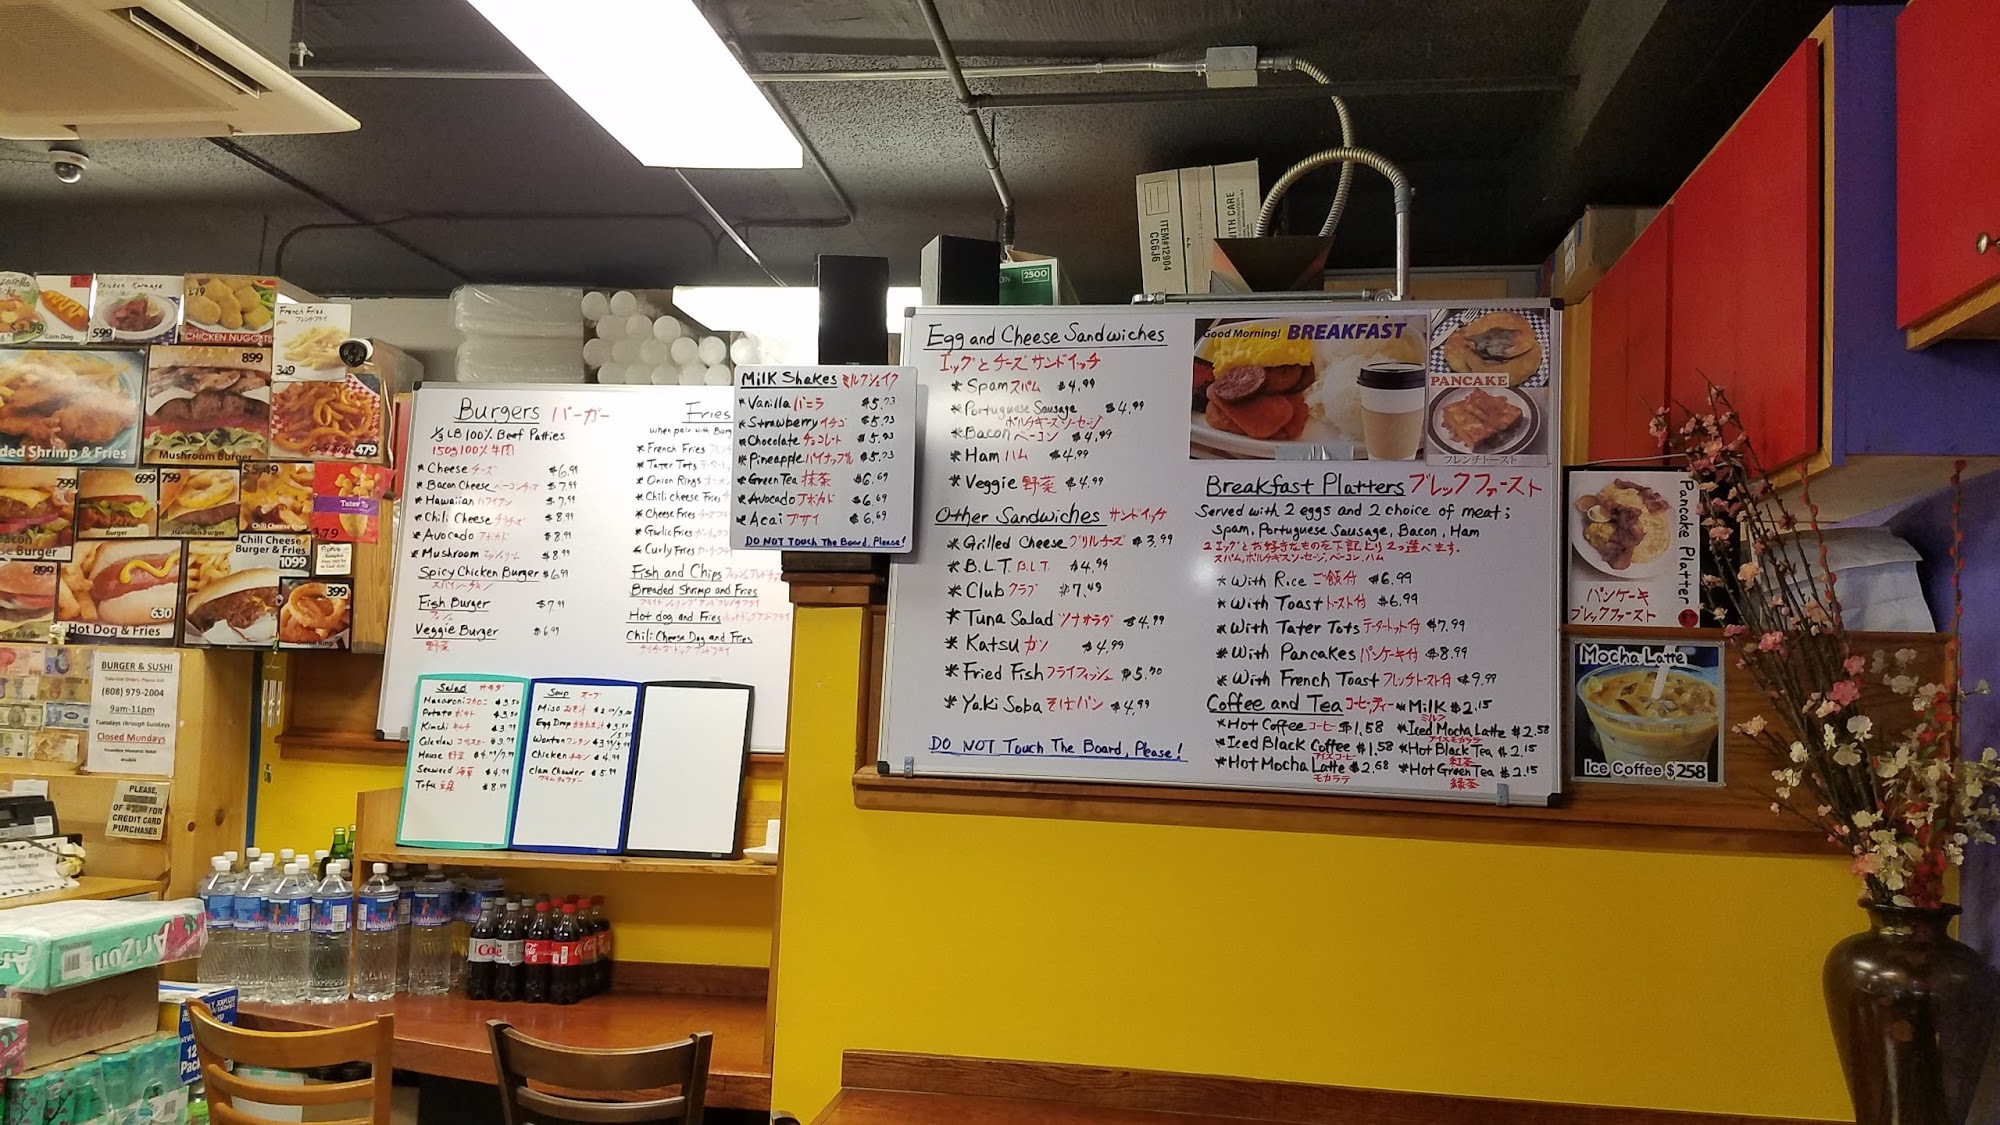 $3.99
Corn Dog
Chicken Karaage
599
CHICKEN NUGGETS
French Fries
フレンチフライ
349
ded Shrimp & Fries
899
Mushroom Burger
479
799
699
Burger
799
Hawaiian Burger
$5.49
Chili Cheese Fries
Tater Tots
379
se Burger
899
Hot Dog & Fries
630
Chili Cheese
Burger & Fries
1099
399
Onion Ring
BURGER & SUSHI
(808) 979-2004
9am-11pm
Tuesdays through Sundays
Closed Mondays
PLEASE,
OF FOR
CREDIT CARD
PURCHASES
Burgers バーガー
⅓ LB 100% Beef Patties
150g 100% 牛肉
* Cheese チーズ $6.99
* Bacon Cheese ベーコンチーズ $7.99
* Hawaiian ハワイアン $7.99
* Chili Cheese チリチーズ $8.99
* Avocado アボカド $8.99
* Mushroom $8.99
Spicy Chicken Burger $6.99
スパイシーチキン
Fish Burger $7.99
Veggie Burger $6.99
野菜
Fries
when pair with Burg
* French Fries
* Tater Tots
* Onion Rings
* Chili cheese Fries
* Cheese Fries
* Garlic Fries
* Curly Fries
Fish and Chips
Breaded Shrimp and Fries
Hot dog and Fries
Chili Cheese Dog and Fries
Milk Shakes ミルクシェイク
* Vanilla バニラ $5.73
* Strawberry イチゴ $5.73
* Chocolate チョコレート $5.73
* Pineapple パイナップル $5.73
* Green Tea 抹茶 $6.69
* Avocado アボカド $6.69
* Acai アサイ $6.69
DO NOT Touch The Board, Please!
Salad サラダ
Macaroni マカロニ $3.50
Potato ポテト $3.50
Kimchi キムチ $3.99
Coleslaw コールスロー $3.99
House 野菜
Seaweed 海藻 $4.99
Tofu 豆腐 $8.99
Soup スープ
Miso みそ汁
Egg Drop
Wonton ワンタン
Chicken チキン $4.99
Clam Chowder $5.99
クラムチャウダー
Egg and Cheese Sandwiches
エッグとチーズサンドイッチ
* Spam スパム $4.99
* Portuguese Sausage $4.99
ポルチギースソーセージ
* Bacon ベーコン $4.99
* Ham ハム $4.99
* Veggie 野菜 $4.99
Other Sandwiches サンドイッチ
* Grilled Cheese グリルチーズ $3.99
* B.L.T. B.L.T. $4.99
* Club クラブ $7.49
* Tuna Salad ツナサラダ $4.99
* Katsu カツ $4.99
* Fried Fish フライフィッシュ $5.70
* Yaki Soba そばパン $4.99
DO NOT Touch The Board, Please!
Good Morning! BREAKFAST
PANCAKE
フレンチトースト
Breakfast Platters ブレックファースト
Served with 2 eggs and 2 choice of meat;
Spam, Portuguese Sausage, Bacon, Ham
2エッグとお好きなものを下記より2つ選べます.
スパム,ポルチギースソーセージ,ベーコン,ハム
* With Rice ご飯付 $6.99
* With Toast トースト付 $6.99
* With Tater Tots テータートット付 $7.99
* With Pancakes パンケーキ付 $8.99
* With French Toast フレンチトースト付 $9.99
Coffee and Tea コーヒーティー
* Hot Coffee コーヒー $1.58
* Iced Black Coffee $1.58
アイスコーヒー
* Hot Mocha Latte $2.68
モカラテ
* Milk $2.15
ミルク
* Iced Mocha Latte $2.58
アイスモカラテ
* Hot Black Tea $2.15
紅茶
* Hot Green Tea $2.15
緑茶
Pancake Platter
パンケーキ
ブレックファースト
Mocha Latte
Ice Coffee $258
ITEM#12904
CC6J6
WITH CARE
2500
AriZona
Coca-Cola
Coke
12
Pack